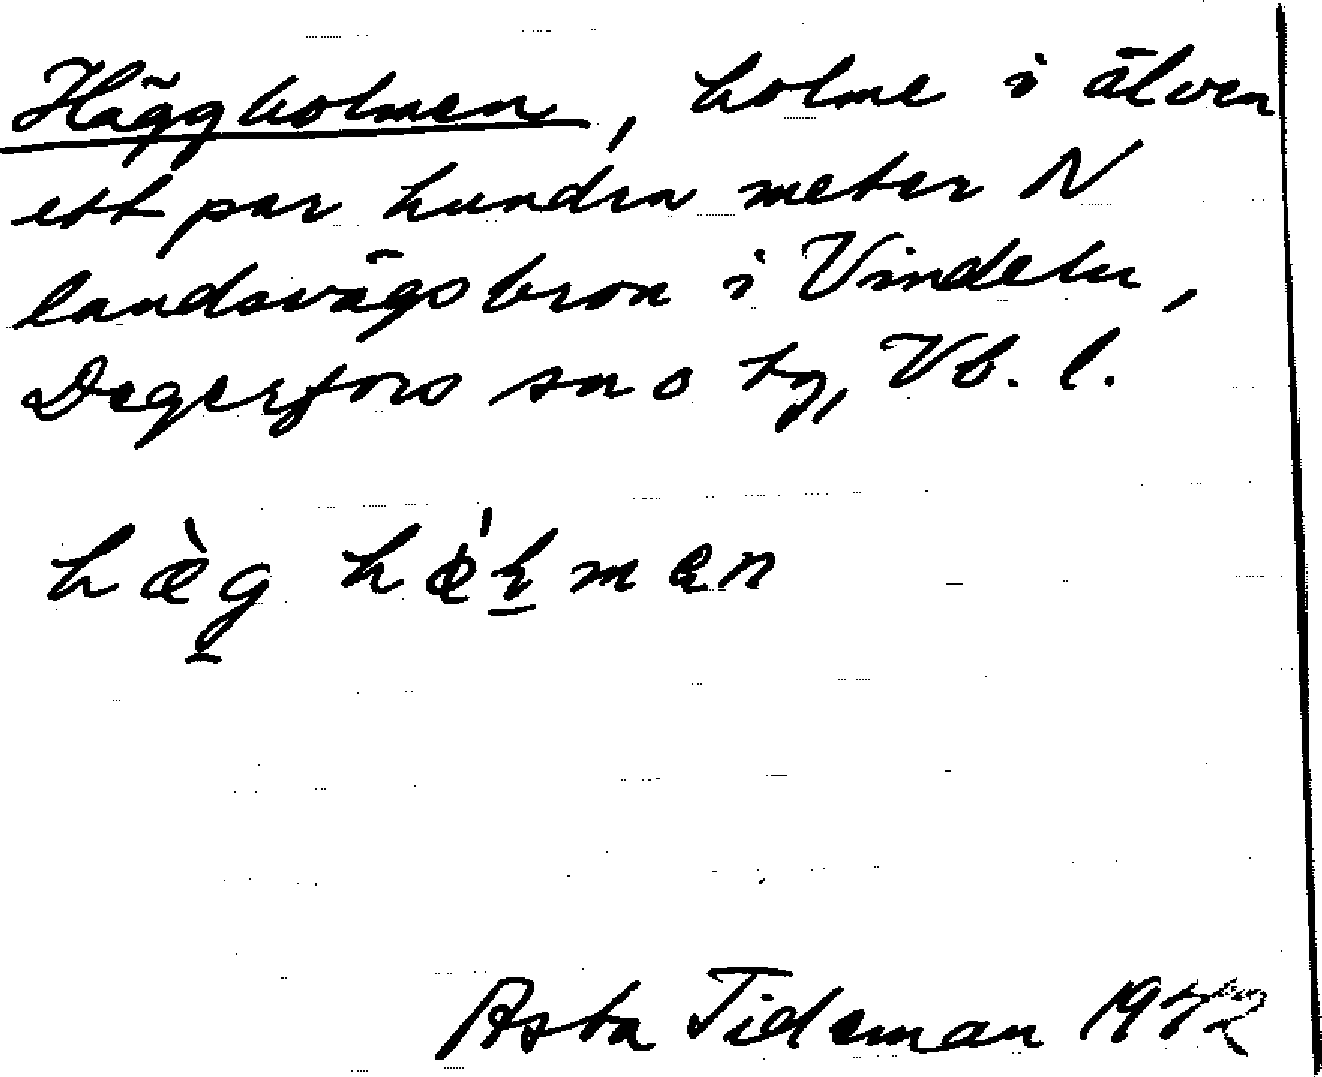 Häggholmen, holme i älven
ett par hundra meter N
landsvägsbron i Vindeln,
Degerfors sn o tg, Vb. l.
hæ̀g
Asta Tideman